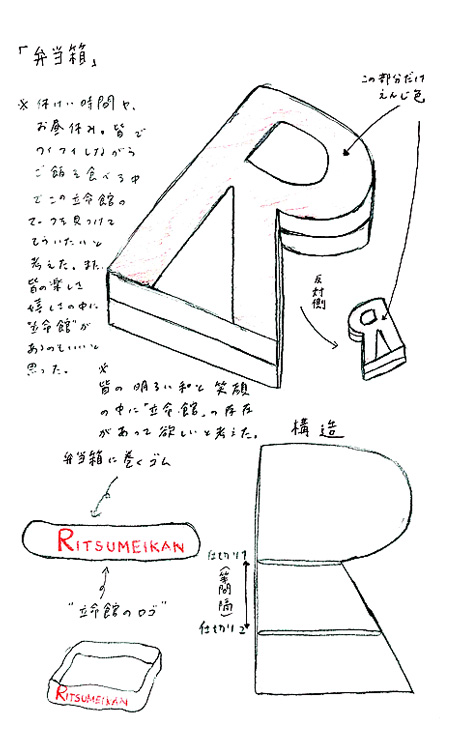 「弁当箱」
※ 休けい時間や、
お昼休み。皆で
ワイワイしながら
ご飯を食べる中
でこの立命館の
マークを見つけて
もらいたいと
考えた。また、
皆の楽しさ
嬉しさの中に
"立命館"が
あるのもいいと
思った。
この部分だけ
えんじ色
反対側
※
皆の明るい和と笑顔
の中に"立命館"の存在
があって欲しいと考えた。
弁当箱に巻くゴム
RITSUMEIKAN
"立命館のロゴ"
RITSUMEIKAN
構造
仕切り1
(等間隔)
仕切り2